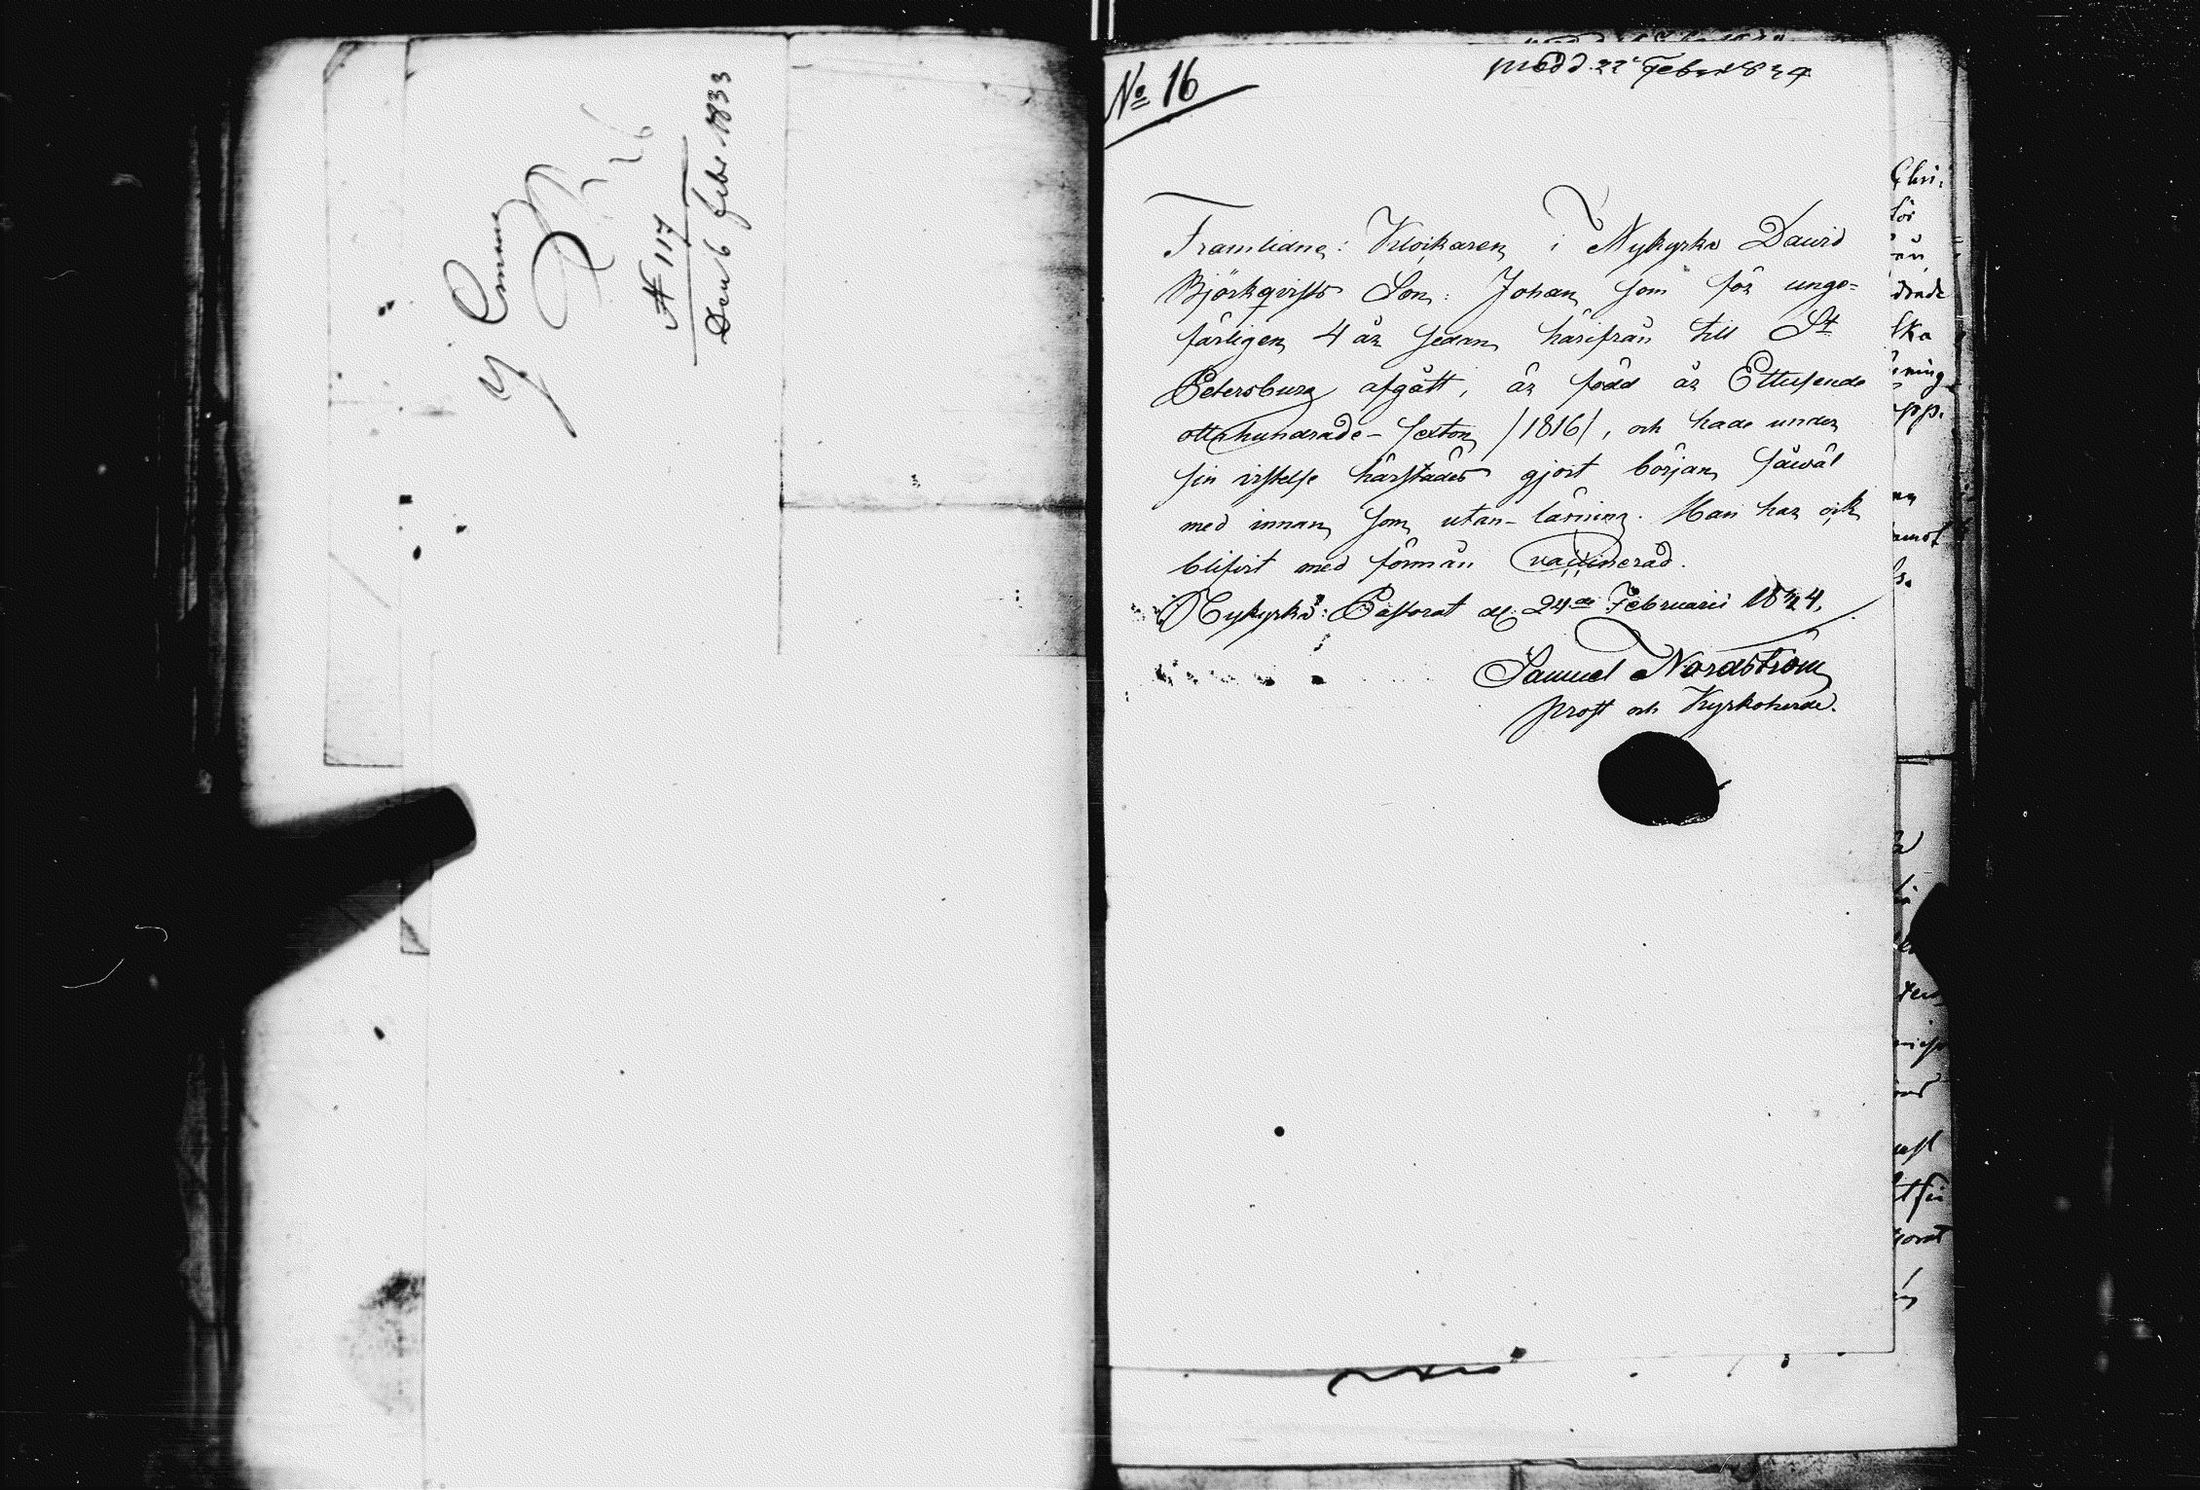 N 117
Den 6 febr. 1833
No 16
prodd 22 Febr 1834
Framlidne: Klockaren i Nykyrka David
Björkqvists Son: Johan, som för unge-
färligen 4 år sedan härifrån till St
Petersburg afgått, är född år Ettusende
ottahundrade-sexton /1816/, och hade under
sin vistelse härstädes gjort början såwäl
med innan som utan-läsning. Han har ock
blifvit med förmån vaccinerad.
Nykyrka: Pastorat d. 24de Februarii 1834.
Samuel Nordström
prost och Kyrkoherde.